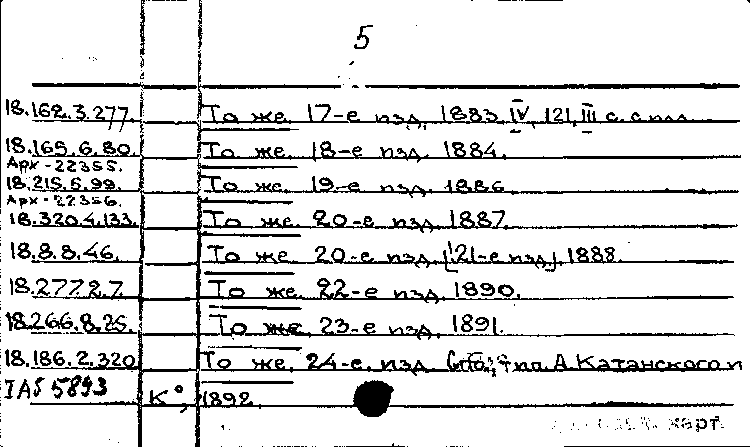 5
18.162.3.277. То же. 17-е изд. 1883. IV, 121, III с. с илл.
18.165.6.80. То же. 18-е изд. 1884.
Арх-22355.
18.215.5.99. То же. 19-е изд. 1886.
Арх-22356.
18.320.4.133. То же. 20-е изд. 1887.
18.8.8.46. То же. 20-е изд. [21-е изд]. 1888.
18.277.2.7. То же. 22-е изд. 1890.
18.266.8.25. То же. 23-е изд. 1891.
18.186.2.320 То же. 24-е изд. Спб, тип. А. Катанского и
IAS 5893 К°, 1892.
карт.